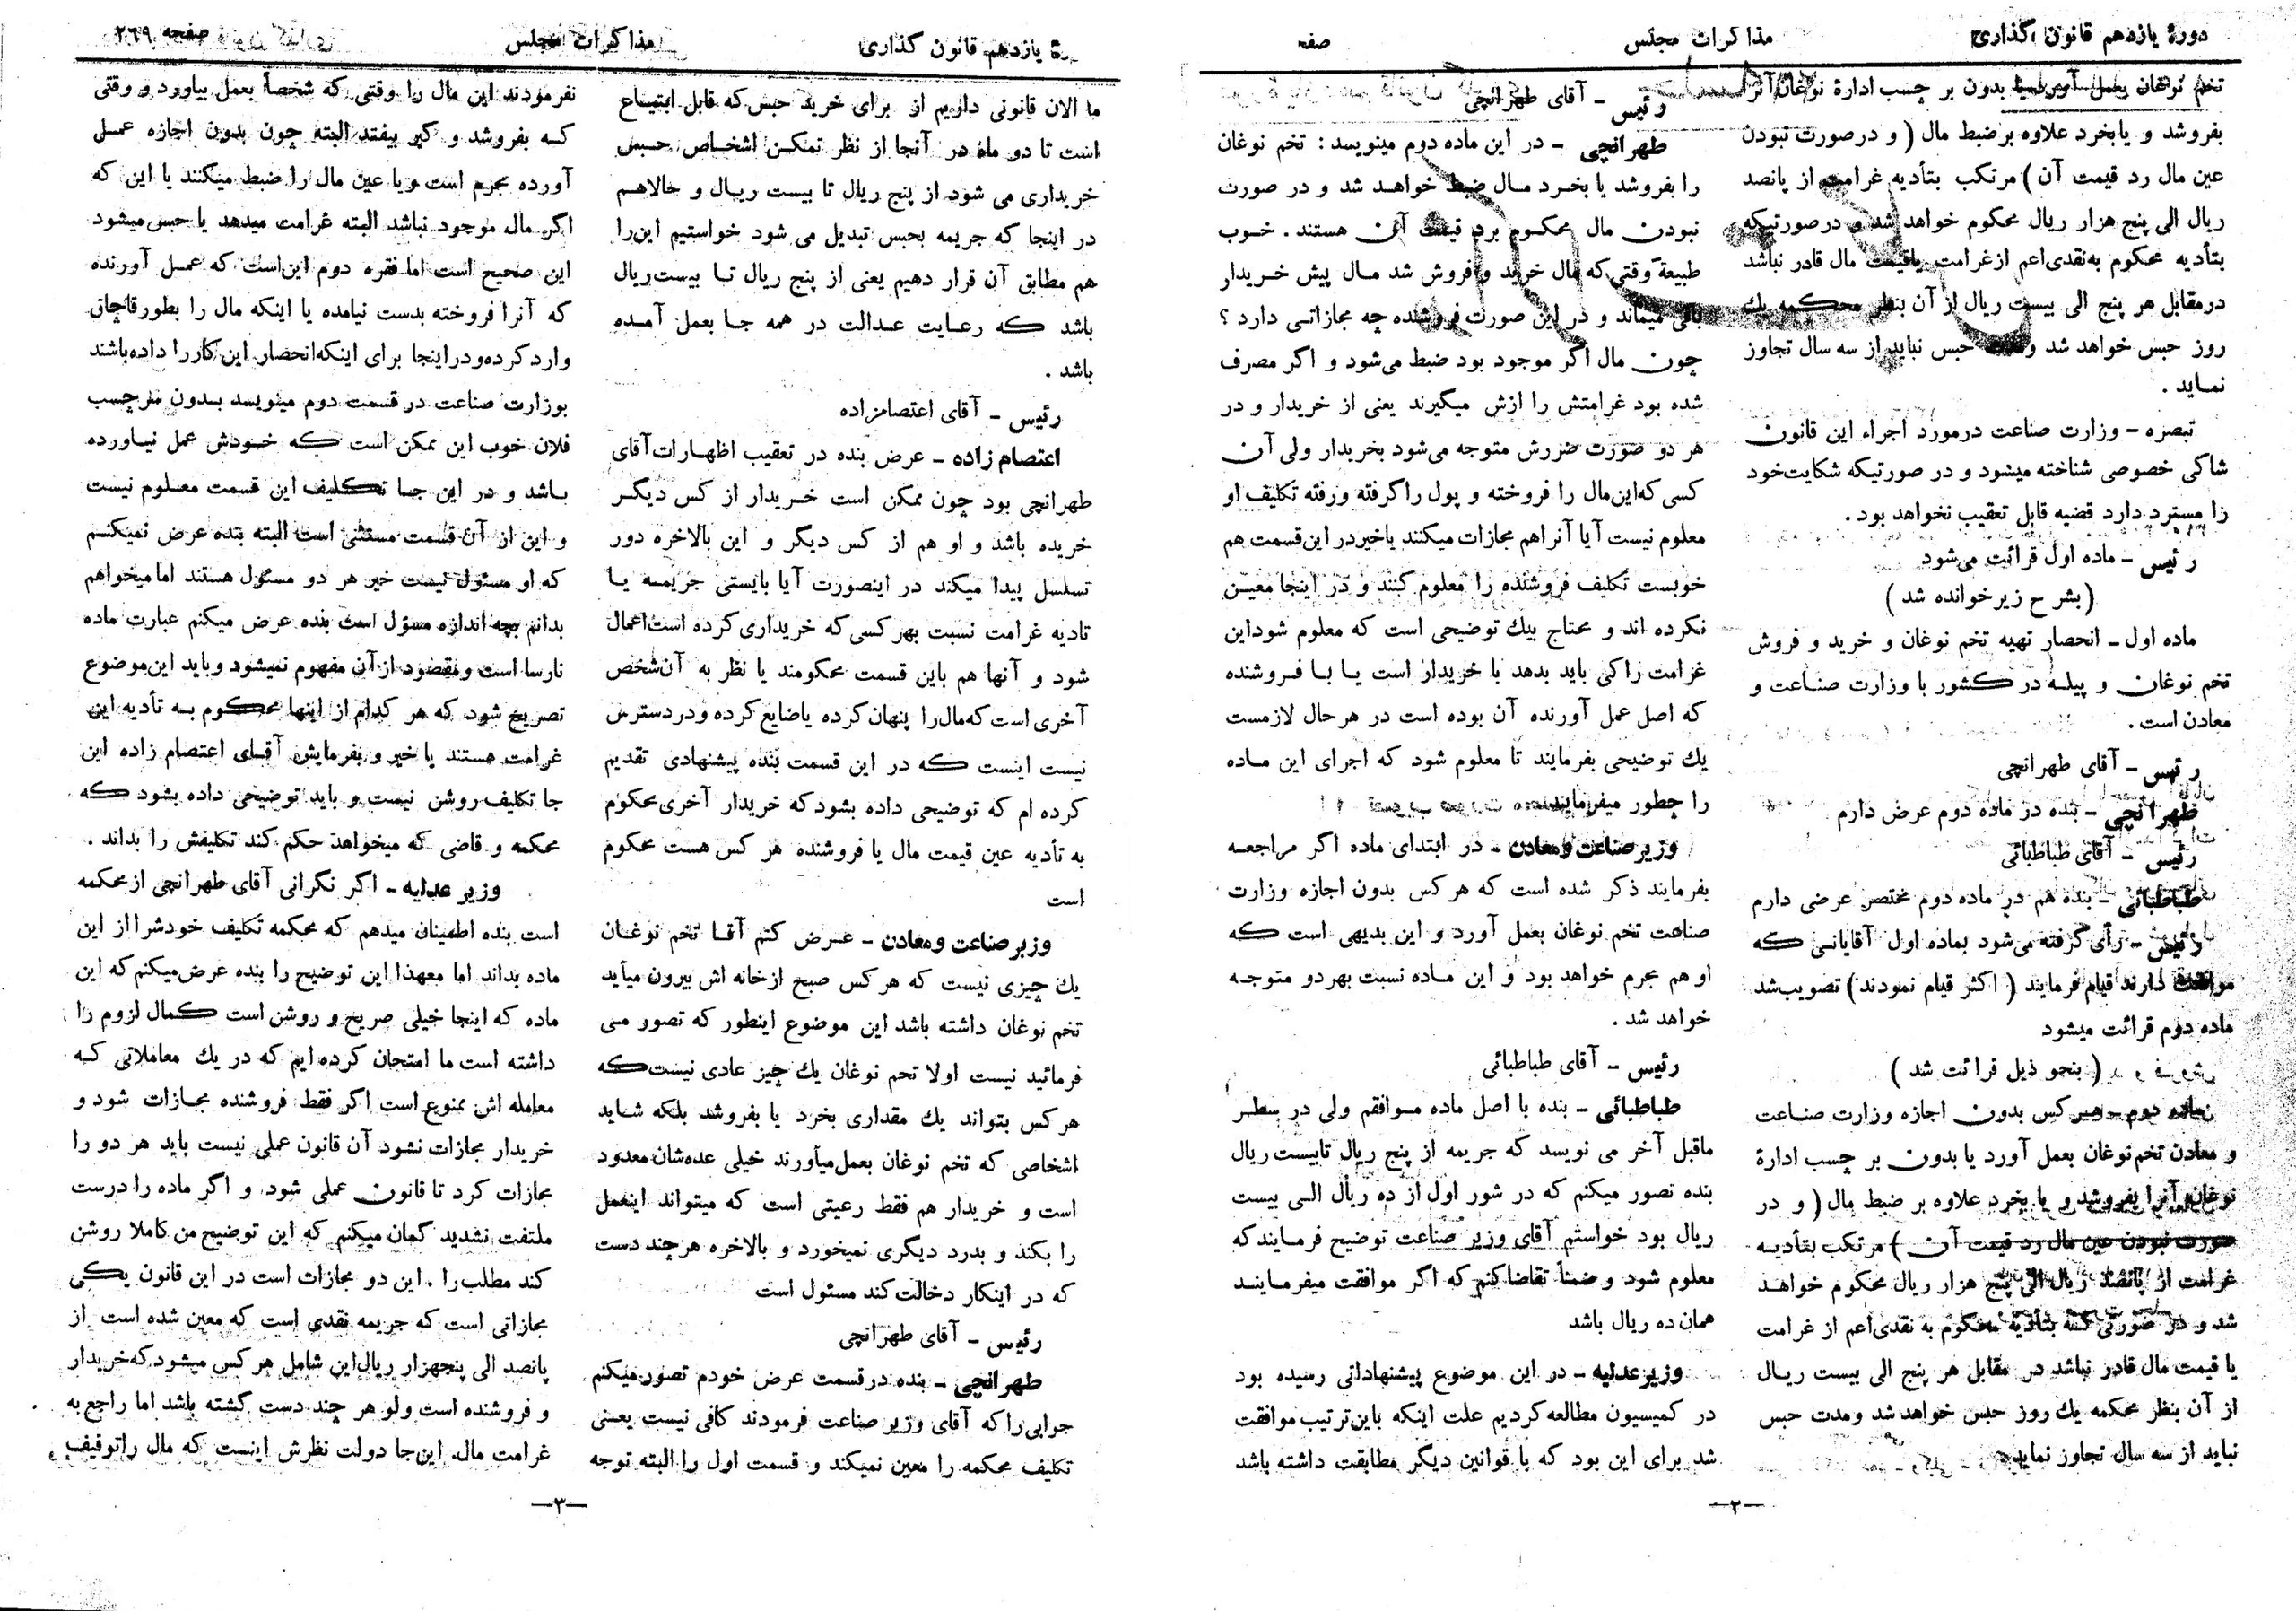 دورهٔ یازدهم قانون گذاری
مذاکرات مجلس
صفحه
تخم نوغان بعمل آورد یا بدون بر چسب ادارهٔ نوغان آنرا
بفروشد و یا بخرد علاوه بر ضبط مال ( و درصورت نبودن
عین مال رد قیمت آن ) مرتکب بتأدیه غرامت از پانصد
ریال الی پنج هزار ریال محکوم خواهد شد و درصورتیکه
بتأدیه محکوم به‌نقدی اعم از غرامت یا قیمت مال قادر نباشد
درمقابل هر پنج الی بیست ریال از آن بنظر محکمه یك
روز حبس خواهد شد و مدت حبس نباید از سه سال تجاوز
نماید .
تبصره – وزارت صناعت درمورد اجراء این قانون
شاکی خصوصی شناخته میشود و در صورتیکه شکایت‌خود
را مسترد دارد قضیه قابل تعقیب نخواهد بود .
رئیس – ماده اول قرائت می‌شود
( بشرح زیرخوانده شد )
ماده اول – انحصار تهیه تخم نوغان و خرید و فروش
تخم نوغان و پیله در کشور با وزارت صناعت و
معادن است .
رئیس – آقای طهرانچی
طهرانچی – بنده در ماده دوم عرض دارم
رئیس – آقای طباطبائی
طباطبائی – بنده هم در ماده دوم مختصر عرضی دارم
رئیس – رأی گرفته می‌شود بماده اول آقایانی که
موافقت دارند قیام فرمایند ( اکثر قیام نمودند ) تصویب شد
ماده دوم قرائت میشود
( بنحو ذیل قرائت شد )
ماده دوم – هر کس بدون اجازه وزارت صناعت
و معادن تخم نوغان بعمل آورد یا بدون بر چسب ادارهٔ
نوغان آنرا بفروشد و یا بخرد علاوه بر ضبط مال ( و در
صورت نبودن عین مال رد قیمت آن ) مرتکب بتأدیه
غرامت از پانصد ریال الی پنج هزار ریال محکوم خواهد
شد و در صورتی که بتأدیه محکوم به نقدی اعم از غرامت
یا قیمت مال قادر نباشد در مقابل هر پنج الی بیست ریال
از آن بنظر محکمه یك روز حبس خواهد شد ومدت حبس
نباید از سه سال تجاوز نماید
رئیس – آقای طهرانچی
طهرانچی – در این ماده دوم مینویسد : تخم نوغان
را بفروشد یا بخرد مال ضبط خواهد شد و در صورت
نبودن مال محکوم برد قیمت آن هستند . خوب
طبیعة وقتی که مال خرید و فروش شد مال پیش خریدار
باقی میماند و در این صورت فروشنده چه مجازاتی دارد ؟
چون مال اگر موجود بود ضبط می‌شود و اگر مصرف
شده بود غرامتش را ازش میگیرند یعنی از خریدار و در
هر دو صورت ضررش متوجه می‌شود بخریدار ولی آن
کسی که‌این‌مال را فروخته و پول را گرفته ورفته تکلیف او
معلوم نیست آیا آنراهم مجازات میکنند یاخیر در این‌قسمت هم
خوبست تکلیف فروشنده را معلوم کنند و در اینجا معین
نکرده اند و محتاج بیك توضیحی است که معلوم شود این
غرامت را کی باید بدهد با خریدار است یا با فروشنده
که اصل عمل آورنده آن بوده است در هرحال لازمست
یك توضیحی بفرمایند تا معلوم شود که اجرای این ماده
را چطور میفرمایند
وزیر صناعت و معادن – در ابتدای ماده اگر مراجعه
بفرمایند ذکر شده است که هرکس بدون اجازه وزارت
صناعت تخم نوغان بعمل آورد و این بدیهی است که
او هم مجرم خواهد بود و این ماده نسبت بهردو متوجه
خواهد شد .
رئیس – آقای طباطبائی
طباطبائی – بنده با اصل ماده موافقم ولی در سطر
ماقبل آخر می نویسد که جریمه از پنج ریال تابیست ریال
بنده تصور میکنم که در شور اول از ده ریال الی بیست
ریال بود خواستم آقای وزیر صناعت توضیح فرمایند که
معلوم شود و ضمناً تقاضا کنم که اگر موافقت میفرمایند
همان ده ریال باشد
وزیر عدلیه – در این موضوع پیشنهاداتی رسیده بود
در کمیسیون مطالعه کردیم علت اینکه باین‌ترتیب موافقت
شد برای این بود که با قوانین دیگر مطابقت داشته باشد
—۲—
یازدهم قانون گذاری
مذاکرات مجلس
صفحه ۲۶۹
ما الان قانونی داریم از برای خرید حبس که قابل ابتیاع
است تا دو ماه در آنجا از نظر تمکن اشخاص حبس
خریداری می شود از پنج ریال تا بیست ریال و حالاهم
در اینجا که جریمه بحبس تبدیل می شود خواستیم این‌را
هم مطابق آن قرار دهیم یعنی از پنج ریال تا بیست ریال
باشد که رعایت عدالت در همه جا بعمل آمده
باشد .
رئیس – آقای اعتصامزاده
اعتصام زاده – عرض بنده در تعقیب اظهارات آقای
طهرانچی بود چون ممکن است خریدار از کس دیگر
خریده باشد و او هم از کس دیگر و این بالاخره دور
تسلسل پیدا میکند در اینصورت آیا بایستی جریمه یا
تادیه غرامت نسبت بهر کسی که خریداری کرده است اعمال
شود و آنها هم باین قسمت محکومند یا نظر به آن‌شخص
آخری است که‌مال‌را پنهان کرده یاضایع کرده ودر دسترس
نیست اینست که در این قسمت بنده پیشنهادی تقدیم
کرده ام که توضیحی داده بشود که خریدار آخری محکوم
به تأدیه عین قیمت مال یا فروشنده هر کس هست محکوم
است
وزیر صناعت و معادن – عرض کنم آقا تخم نوغان
یك چیزی نیست که هرکس صبح از خانه اش بیرون میآید
تخم نوغان داشته باشد این موضوع اینطور که تصور می
فرمائید نیست اولا تخم نوغان یك چیز عادی نیست که
هرکس بتواند یك مقداری بخرد یا بفروشد بلکه شاید
اشخاصی که تخم نوغان بعمل میآورند خیلی عده‌شان معدود
است و خریدار هم فقط رعیتی است که میتواند اینعمل
را بکند و بدرد دیگری نمیخورد و بالاخره هرچند دست
که در اینکار دخالت کند مسئول است
رئیس – آقای طهرانچی
طهرانچی – بنده در قسمت عرض خودم تصور میکنم
جوابی را که آقای وزیر صناعت فرمودند کافی نیست یعنی
تکلیف محکمه را معین نمیکند و قسمت اول را البته توجه
نفرمودند این مال را وقتی که شخصاً بعمل بیاورد و وقتی
که بفروشد و گیر بیفتد البته چون بدون اجازه عمل
آورده مجرم است و یا عین مال را ضبط میکنند یا این که
اگر مال موجود نباشد البته غرامت میدهد یا حبس میشود
این صحیح است اما فقره دوم این‌است که عمل آورنده
که آنرا فروخته بدست نیامده یا اینکه مال را بطور قاچاق
وارد کرده و در اینجا برای اینکه انحصار این کار را داده باشند
بوزارت صناعت در قسمت دوم مینویسد بدون برچسب
فلان خوب این ممکن است که خودش عمل نیاورده
باشد و در این جا تکلیف این قسمت معلوم نیست
و این از آن قسمت مستثنی است البته بنده عرض نمیکنم
که او مسئول نیست خیر هر دو مسئول هستند اما میخواهم
بدانم بچه اندازه مسؤل است بنده عرض میکنم عبارت ماده
نارسا است و مقصود از آن مفهوم نمیشود و باید این‌موضوع
تصریح شود که هر کدام از اینها محکوم به تأدیه این
غرامت هستند یا خیر و بفرمایش آقای اعتصام زاده این
جا تکلیف روشن نیست و باید توضیحی داده بشود که
محکمه و قاضی که میخواهد حکم کند تکلیفش را بداند .
وزیر عدلیه – اگر نگرانی آقای طهرانچی از محکمه
است بنده اطمینان میدهم که محکمه تکلیف خودش را از این
ماده بداند اما معهذا این توضیح را بنده عرض میکنم که این
ماده که اینجا خیلی صریح و روشن است کمال لزوم را
داشته است ما امتحان کرده ایم که در یك معاملاتی که
معامله اش ممنوع است اگر فقط فروشنده مجازات شود و
خریدار مجازات نشود آن قانون عملی نیست باید هر دو را
مجازات کرد تا قانون عملی شود و اگر ماده را درست
ملتفت نشدید گمان میکنم که این توضیح من کاملا روشن
کند مطلب را . این دو مجازات است در این قانون یکی
مجازاتی است که جریمه نقدی است که معین شده است از
پانصد الی پنجهزار ریال این شامل هرکس میشود که خریدار
و فروشنده است ولو هر چند دست گشته باشد اما راجع به
غرامت مال. این‌جا دولت نظرش اینست که مال را توقیف
—۳—